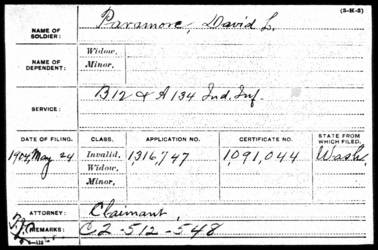 (3-H-5)
NAME OF SOLDIER: Paramore, David L.
NAME OF DEPENDENT: Widow,
Minor,
SERVICE: B 12 & A 134 Ind. Inf.
DATE OF FILING. CLASS. APPLICATION NO. CERTIFICATE NO. STATE FROM WHICH FILED.
1904, May 24 Invalid, 1,316,747 1,091,044 Wash.
Widow,
Minor,
ATTORNEY: Claimant,
REMARKS: C 2-512-548